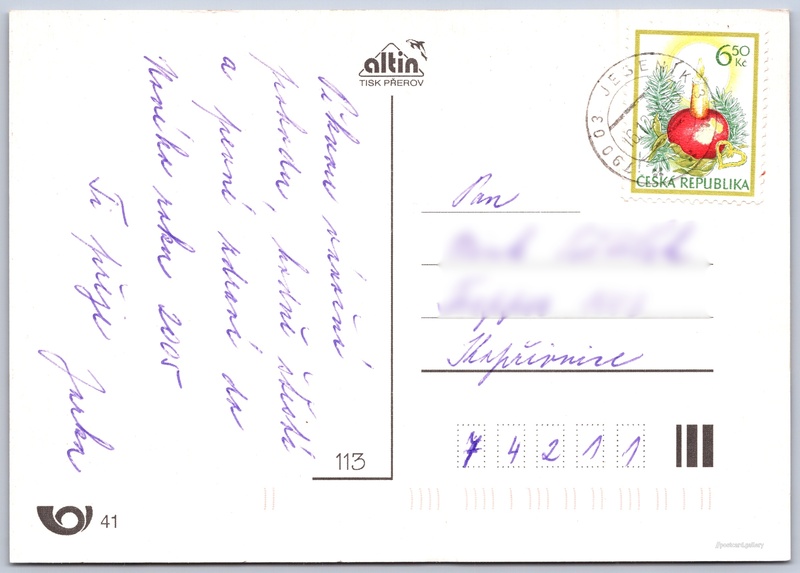 altin
TISK PŘEROV
6 50
Kč
ČESKÁ REPUBLIKA
790 03 JESENÍK 3
Pan
Kopřivnice
7 4 2 1 1
113
41
vánoční
pohodu, hodně štěstí
a pevné zdraví do
Nového roku 2005
Ti přeje
Jarka
postcard.gallery